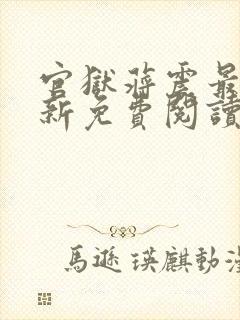 官獄蔣震最
新免費閱讀
馬遜瑛麒動漫